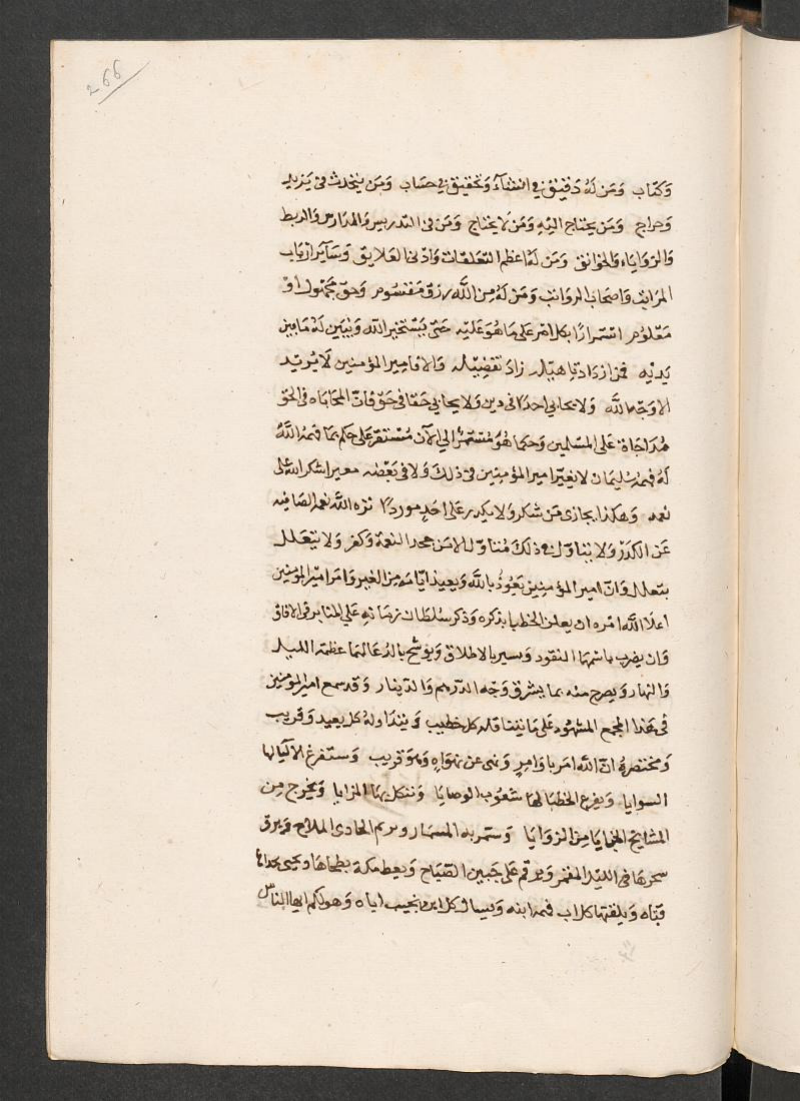 266
وكتاب ومن له دقيق في انشاء وتحقيق في حساب ومن يتحدث في بريد
وخراج ومن يحتاج اليه ومن لا يحتاج ومن في التدريس والمدارس والربط
والزوايا والخوانق ومن له اعظم التعلقات وادنى العلايق وساير ارباب
المراتب واصحاب الرواتب ومن له من الله رزق مقسوم وحق مجهول او
معلوم استمرارا بكل امر على ما هو عليه حتى يستخير الله ويتبين له ما بين
يديه فمن ازداد تاهيله زاد تفضيله والا فامير المؤمنين لا يريد
الا وجه الله ولا يحابي احدا في دين ولا يحابي حقا في حق فان المحاباه في الحق
مداجاة على المسلمين وكلما هو مستمر الى الآن مستقر على حكم بما فهمه الله
له فهمه سليمان لا يغير امير المؤمنين في ذلك ولا في بعضه معيرا شكر الله على
نعمه وهكذا يجازى من شكر ولا يكدر على احد موردا نزه الله نعمه الصافيه
عن الكدر ولا يتاول في ذلك متاول الا من جحد النعمة وكفر ولا يتعلل
متعلل وان امير المؤمنين نعوذ بالله ويعيذ ايامه من الغير وامر امير المؤمنين
اعلا الله امره ان يعلن الخطبا بذكره وذكر سلطان زمانه على المنابر في الافاق
وان يضرب باسمهما النقود ويسير بالاطلاق ويوشح بالدعا لهما عطف الليل
والنهار ويصرح منه بما يشرق وجه الدرهم والدينار وقد سمع امير المؤمنين
في هذا المجمع المشهود على ما يتناقله كل خطيب ويتداوله كل بعيد وقريب
ومختصره ان الله امر باوامر ونهى عن نواه وهو رقيب وستفرغ الالباء لها
السوايا ويفرع الخطبا لها شعوب الوصايا وتتكل بها المزايا ويخرج من
المشايخ الخبايا من الزوايا وستمر به السمار ويترنم الحادي الملاح ويرق
سحرها في الليل المقمر ويرقم على جبين الصباح وتعطر مكة بطحاها ويحيى بحداها
قباه ويلقنها كل اب فهم ابنه ويسال كل ابن ان يجيب اباه وهو لكم ايها الناس